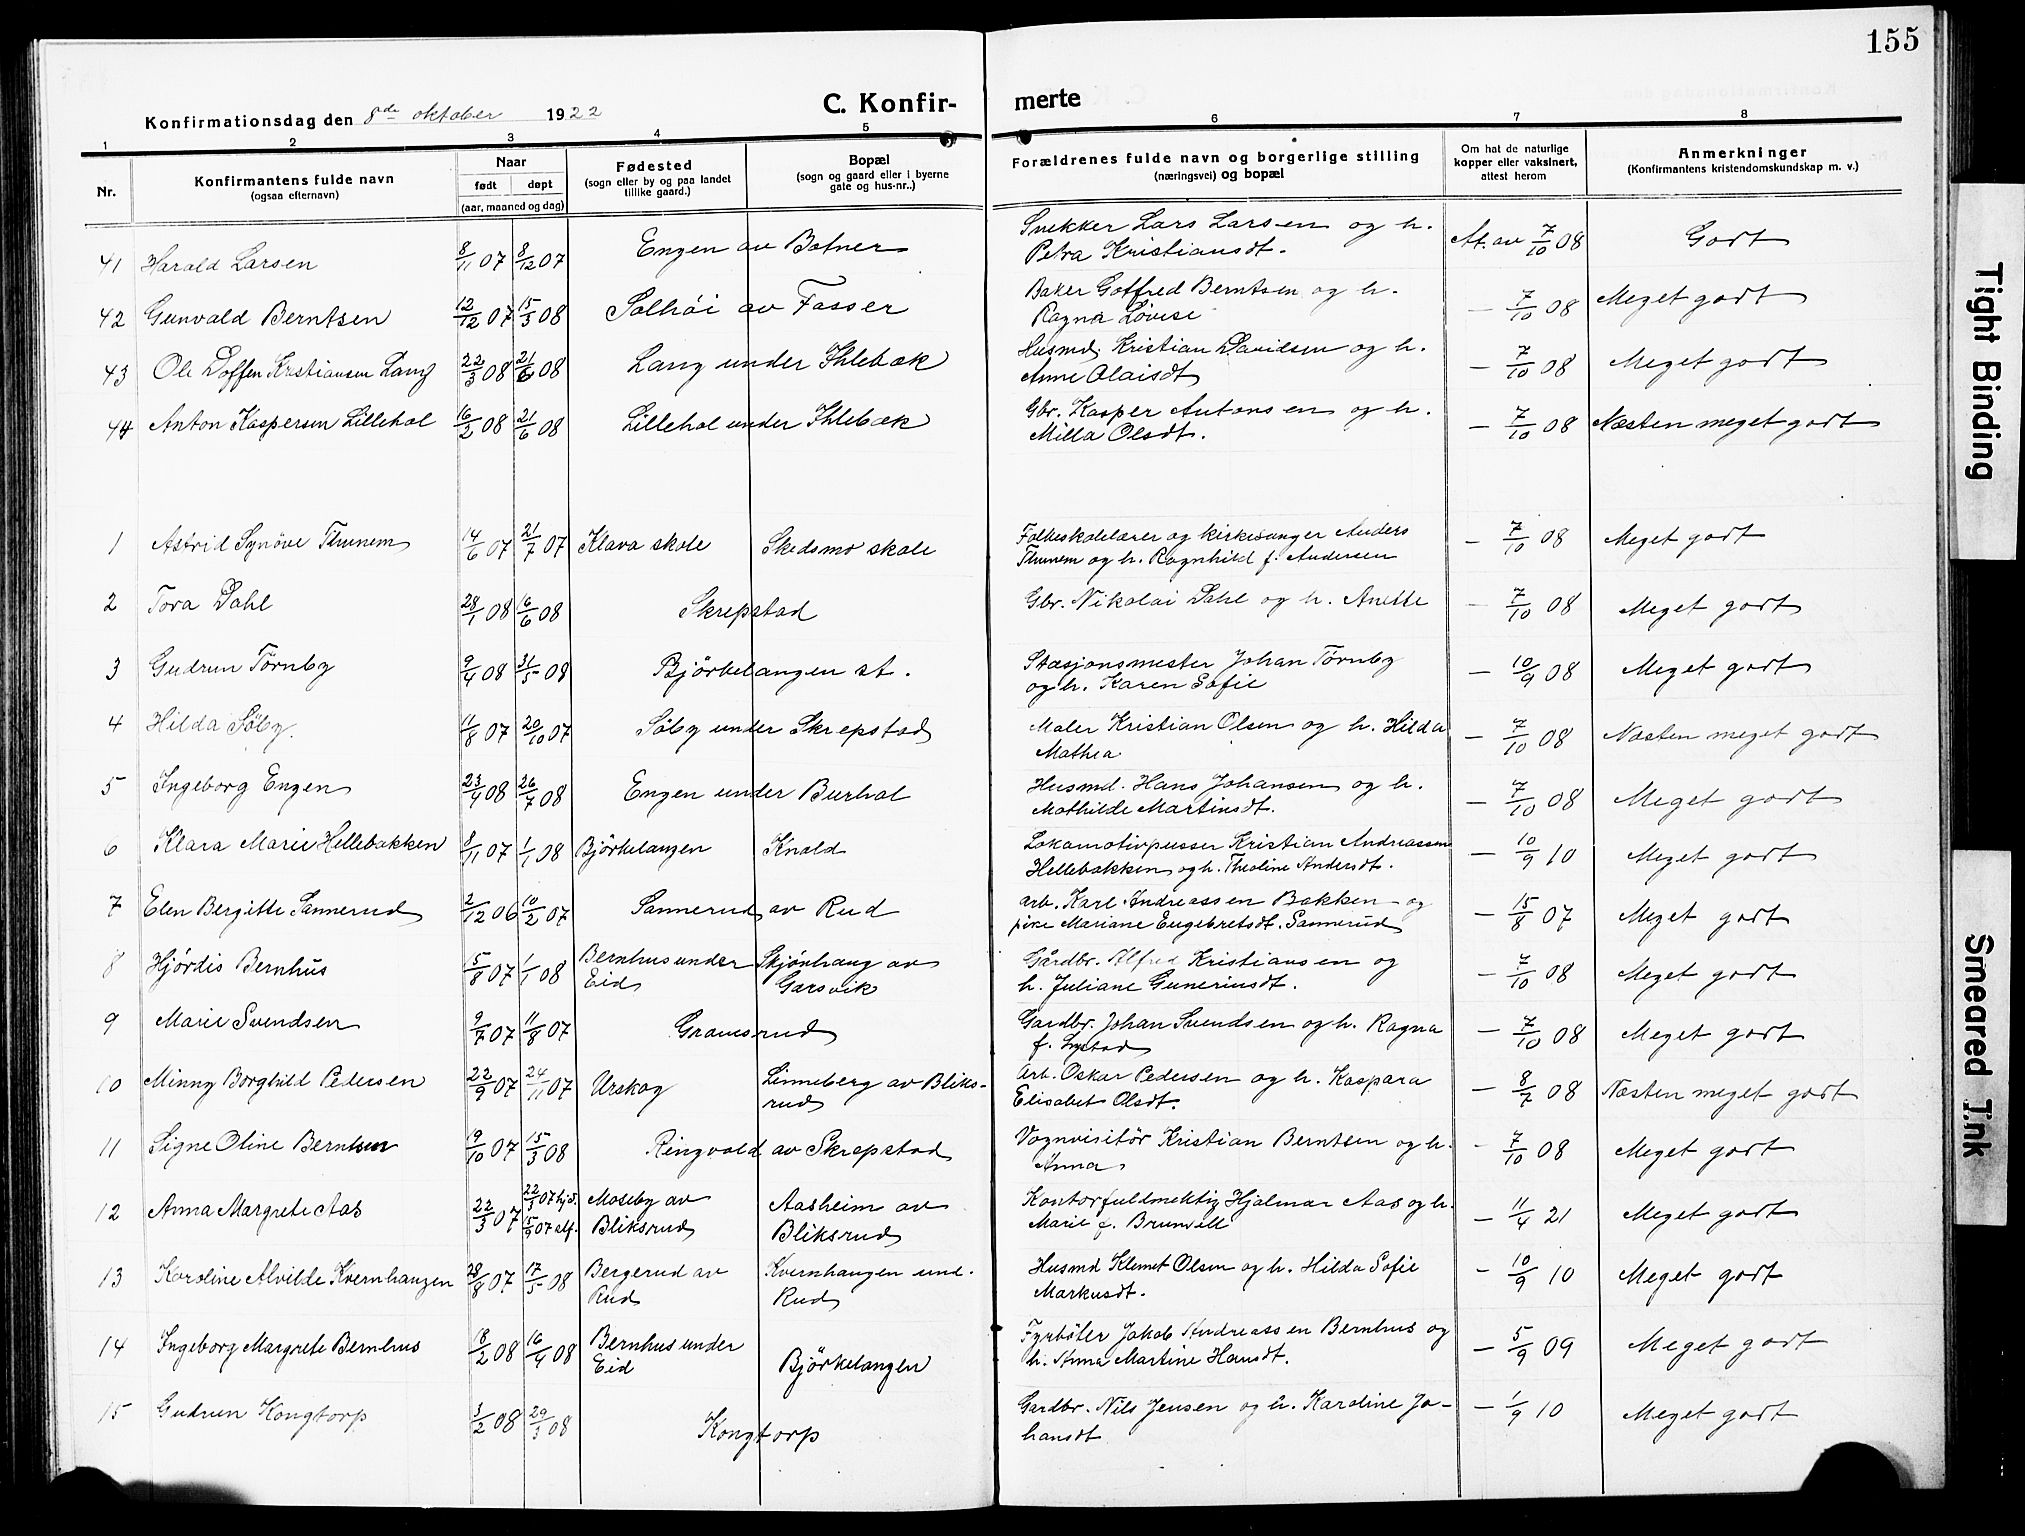 155
Konfirmationsdag den 8de oktober 1922
C. Konfir-
merte
1 2 3 4 5 6 7 8
Nr.
Konfirmantens fulde navn
(ogsaa efternavn)
Naar
født døpt
(aar, maaned og dag)
Fødested
(sogn eller by og paa landet
tillike gaard.)
Bopæl
(sogn og gaard eller i byerne
gate og hus-nr..)
Forældrenes fulde navn og borgerlige stilling
(næringsvei) og bopæl
Om hat de naturlige
kopper eller vaksinert,
attest herom
Anmerkninger
(Konfirmantens kristendomskundskap m. v.)
41 Harald Larsen 8/11 07 8/12 07 Engen av Botner Snekker Lars Larsen og h.
Petra Kristiansdt. At. av 7/10 08 Godt
42 Gunvald Berntsen 12/12 07 15/3 08 Solhøi av Fosser Baker Gotfred Berntsen og h.
Ragna Lovise — 7/10 08 Meget godt
43 Ole Doffen Kristiansen Lang 22/3 08 21/6 08 Lang under Ihlebæk Husmd Kristian Davidsen og h.
Anne Olaisdt — 7/10 08 Meget godt
44 Anton Kaspersen Lillehol 16/2 08 21/6 08 Lillehol under Ihlebæk Gbr. Kasper Antonsen og h.
Milla Olsdt. — 7/10 08 Næsten meget godt
1 Astrid Synöve Thunem 14/6 07 21/7 07 Klava skole Skedsmo skole Folkeskolelærer og kirkesanger Anders
Thunem og h. Ragnhild f. Andersen — 7/10 08 Meget godt
2 Tora Dahl 28/1 08 16/6 08 Skrepstad Gbr. Nikolai Dahl og h. Anette — 7/10 08 Meget godt
3 Gudrun Tørnby 9/4 08 31/5 08 Björkelangen st. Stasjonsmester Johan Tørnby
og h. Karen Sofie — 10/9 08 Meget godt
4 Hilda Söby. 11/8 07 20/10 07 Söby under Skrepstad Maler Kristian Olsen og h. Hilda
Mathea — 7/10 08 Næsten meget godt
5 Ingeborg Engen 23/4 08 26/7 08 Engen under Burhol Husmd. Hans Johansen og h.
Mathilde Martinsdt. — 7/10 08 Meget godt
6 Klara Marie Hellebakken 8/11 07 1/1 08 Björkelangen Knold Lokomotivpusser Kristian Andreassen
Hellebakken og h. Theoline Andersdt. — 10/9 10 Meget godt
7 Elen Bergitte Sannerud 2/12 06 10/2 07 Sannerud av Rud arb. Karl Andreassen Bakken og
pike Mariane Engebretsdt. Sannerud — 15/8 07 Meget godt
8 Hjördis Bernhus 5/8 07 1/1 08 Bernhus under
Eid Skjønhaug av
Garsvik Gårdbr. Alfred Kristiansen og
h. Juliane Guneriusdt. — 7/10 08 Meget godt
9 Marie Svendsen 9/7 07 11/8 07 Gramsrud Gardbr. Johan Svendsen og h. Ragna
f. — 7/10 08 Meget godt
10 Minny Borghild Pedersen 22/9 07 24/11 07 Urskog Linneberg av Bliks-
rud Arb. Oskar Pedersen og h. Kaspara
Elisabet Olsdt. — 8/7 08 Næsten meget godt
11 Signe Oline Berntsen 19/10 07 15/3 08 Ringvold av Skrepstad Vognvisitör Kristian Berntsen og h.
Anna — 7/10 08 Meget godt
12 Anna Margrete Aas 22/3 07 22/3 07 hjd.
07 Moseby av
Bliksrud Aasheim av
Bliksrud Kontorfuldmektig Hjalmar Aas og h.
Marie f. Brunvell — 11/4 21 Meget godt
13 Karoline Alvilde Kvernhaugen 28/8 07 17/5 08 Bergerud av
Rud Kvernhaugen und.
Rud Husmd Klemet Olsen og h. Hilda Sofie
Markusdt. — 10/9 10 Meget godt
14 Ingeborg Margrete Bernhus 18/2 08 16/4 08 Bernhus under
Eid Björkelangen Fyrbøter Jakob Andreassen Bernhus og
h. Anna Martine Hansdt. — 5/9 09 Meget godt
15 Gudrun Kongtorp 3/2 08 29/3 08 Kongtorp Gardbr. Nils Jensen og h. Karoline Jo-
hansdt — 1/9 10 Meget godt
Tight Binding
Smeared Ink